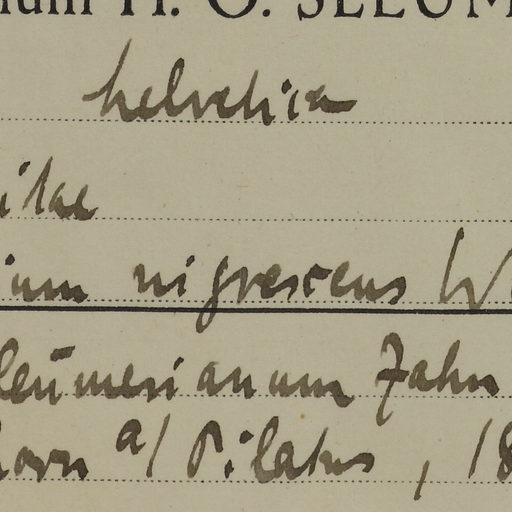 H. O. SLEUM
helvetica
ium nigrescens W
leumerianum Zahn
horn a/ Pilatus, 18